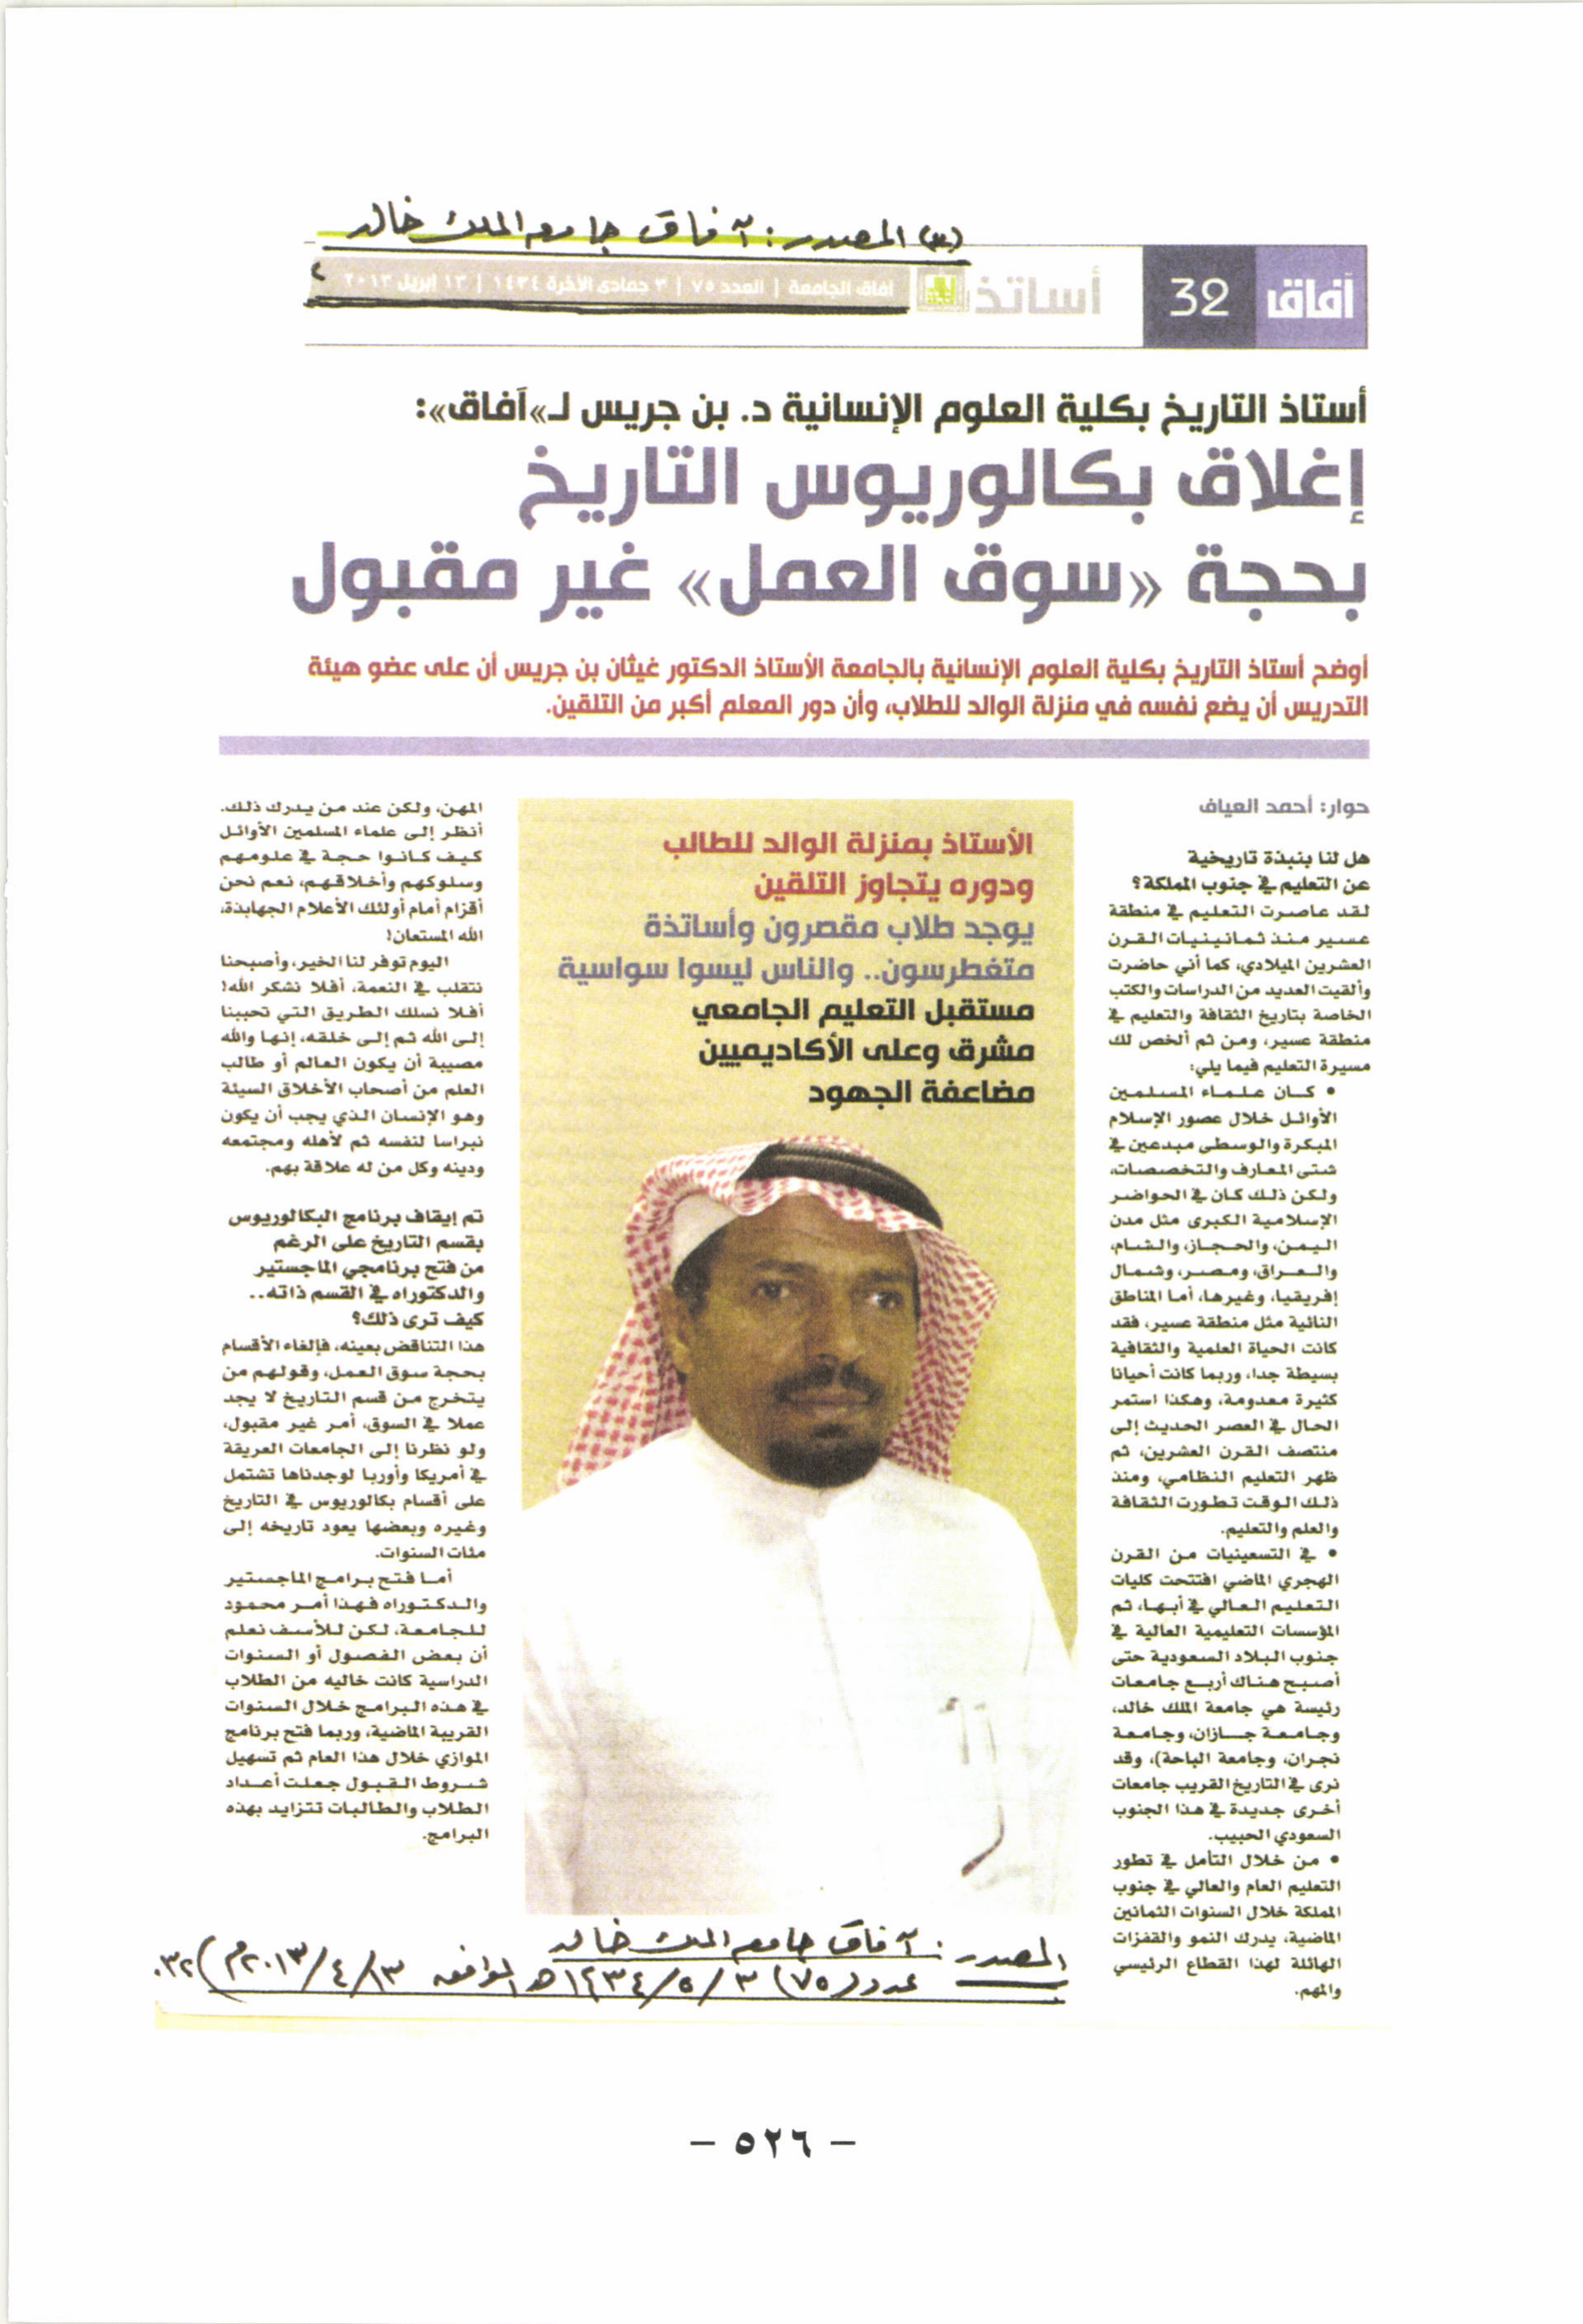 (٣) المصدر: آفاق جامعة الملك خالد
آفاق
32
أساتذة
آفاق الجامعة | العدد ٧٥ | ٣ جمادى الآخرة ١٤٣٤ | ١٣ ابريل ٢٠١٣
أستاذ التاريخ بكلية العلوم الإنسانية د. بن جريس لـ«آفاق»:
إغلاق بكالوريوس التاريخ
بحجة «سوق العمل» غير مقبول
أوضح أستاذ التاريخ بكلية العلوم الإنسانية بالجامعة الأستاذ الدكتور غيثان بن جريس أن على عضو هيئة
التدريس أن يضع نفسه في منزلة الوالد للطلاب، وأن دور المعلم أكبر من التلقين.
حوار: أحمد العياف
هل لنا بنبذة تاريخية
عن التعليم في جنوب المملكة؟
لقد عاصرت التعليم في منطقة
عسير منذ ثمانينيات القرن
العشرين الميلادي، كما أني حاضرت
وألقيت العديد من الدراسات والكتب
الخاصة بتاريخ الثقافة والتعليم في
منطقة عسير، ومن ثم ألخص لك
مسيرة التعليم فيما يلي:
• كان علماء المسلمين
الأوائل خلال عصور الإسلام
المبكرة والوسطى مبدعين في
شتى المعارف والتخصصات،
ولكن ذلك كان في الحواضر
الإسلامية الكبرى مثل مدن
اليمن، والحجاز، والشام،
والعراق، ومصر، وشمال
إفريقيا، وغيرها، أما المناطق
النائية مثل منطقة عسير، فقد
كانت الحياة العلمية والثقافية
بسيطة جدا، وربما كانت أحيانا
كثيرة معدومة، وهكذا استمر
الحال في العصر الحديث إلى
منتصف القرن العشرين، ثم
ظهر التعليم النظامي، ومنذ
ذلك الوقت تطورت الثقافة
والعلم والتعليم.
• في التسعينيات من القرن
الهجري الماضي افتتحت كليات
التعليم العالي في أبها، ثم
المؤسسات التعليمية العالية في
جنوب البلاد السعودية حتى
أصبح هناك أربع جامعات
رئسة هي جامعة الملك خالد،
وجامعة جازان، وجامعة
نجران، وجامعة الباحة)، وقد
نرى في التاريخ القريب جامعات
أخرى جديدة في هذا الجنوب
السعودي الحبيب.
• من خلال التأمل في تطور
التعليم العام والعالي في جنوب
المملكة خلال السنوات الثمانين
الماضية، يدرك النمو والقفزات
الهائلة لهذا القطاع الرئيسي
والمهم.
الأستاذ بمنزلة الوالد للطالب
ودوره يتجاوز التلقين
يوجد طلاب مقصرون وأساتذة
متغطرسون.. والناس ليسوا سواسية
مستقبل التعليم الجامعي
مشرق وعلى الأكاديميين
مضاعفة الجهود
المهن، ولكن عند من يدرك ذلك.
أنظر إلى علماء المسلمين الأوائل
كيف كانوا حجة في علومهم
وسلوكهم وأخلاقهم، نعم نحن
أقزام أمام أولئك الأعلام الجهابذة،
الله المستعان!
اليوم توفر لنا الخير، وأصبحنا
نتقلب في النعمة، أفلا نشكر الله!
أفلا نسلك الطريق التي تحببنا
إلى الله ثم إلى خلقه، إنها والله
مصيبة أن يكون العالم أو طالب
العلم من أصحاب الأخلاق السيئة
وهو الإنسان الذي يجب أن يكون
نبراسا لنفسه ثم لأهله ومجتمعه
ودينه وكل من له علاقة بهم.
تم إيقاف برنامج البكالوريوس
بقسم التاريخ على الرغم
من فتح برنامجي الماجستير
والدكتوراه في القسم ذاته..
كيف ترى ذلك؟
هذا التناقض بعينه، فإلغاء الأقسام
بحجة سوق العمل، وقولهم من
يتخرج من قسم التاريخ لا يجد
عملا في السوق، أمر غير مقبول،
ولو نظرنا إلى الجامعات العريقة
في أمريكا وأوربا لوجدناها تشتمل
على أقسام بكالوريوس في التاريخ
وغيره وبعضها يعود تاريخه إلى
مئات السنوات.
أما فتح برامج الماجستير
والدكتوراه فهذا أمر محمود
للجامعة، لكن للأسف نعلم
أن بعض الفصول أو السنوات
الدراسية كانت خاليه من الطلاب
في هذه البرامج خلال السنوات
القريبة الماضية، وربما فتح برنامج
الموازي خلال هذا العام ثم تسهيل
شروط القبول جعلت أعداد
الطلاب والطالبات تتزايد بهذه
البرامج.
المصدر: آفاق جامعة الملك خالد
عدد (٧٥) ٣/٥/١٤٣٤هـ الموافق ١٣/٤/٢٠١٣م) ٣٢.
– ٥٢٦ –